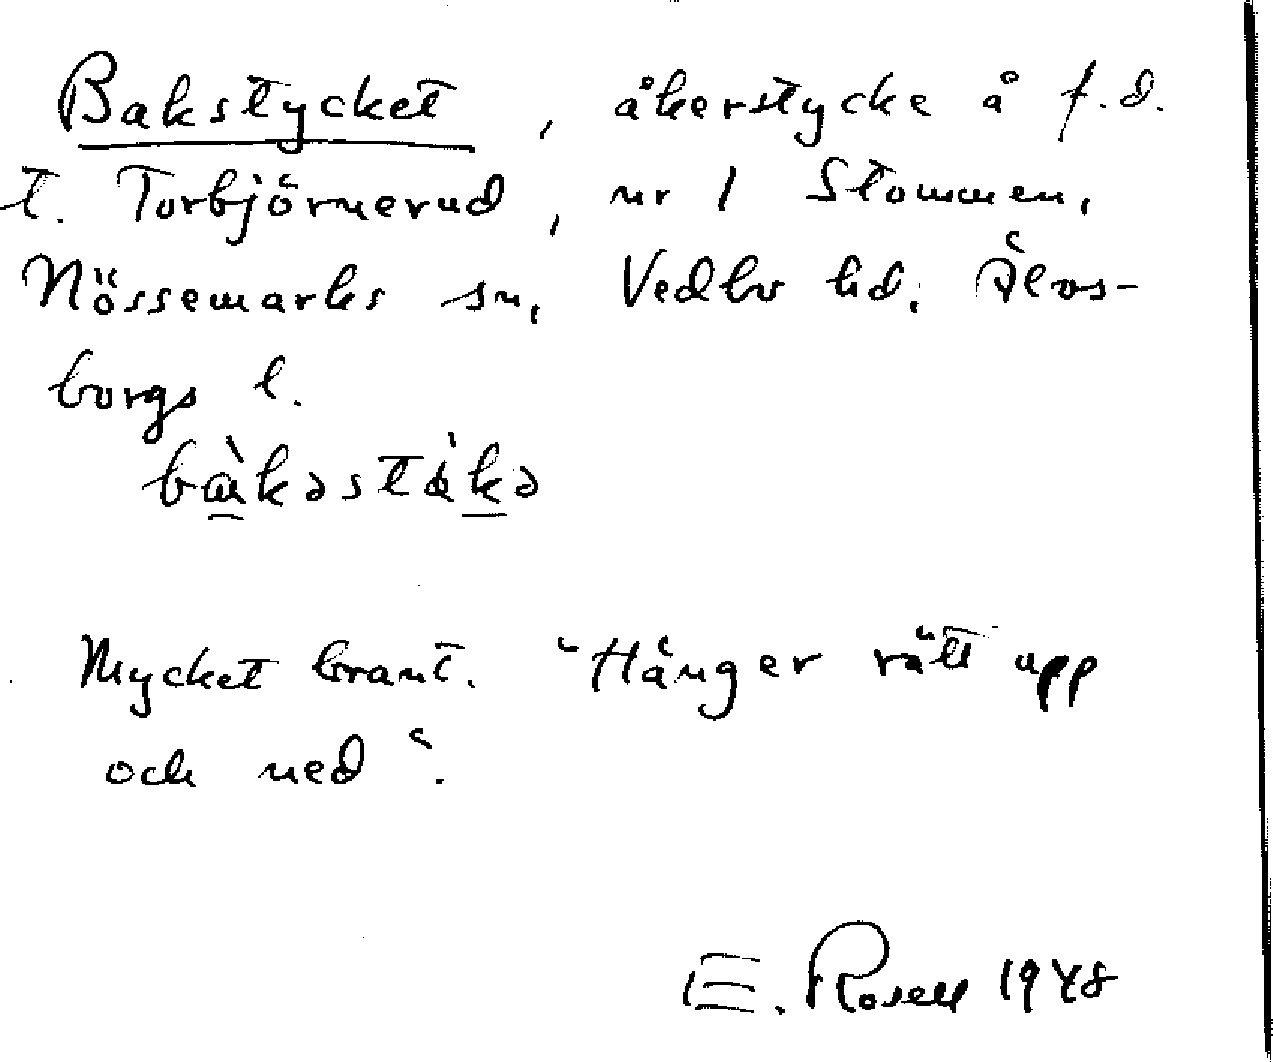 Bakstycket, åkerstycke å f.d.
t. Torbjörnerud, nr 1 Stommen,
Nössemarks sn, Vedbo hd. Älvs-
borgs l.
Mycket brant. "Hänger rätt upp
och ned".
E. Rosell 1948